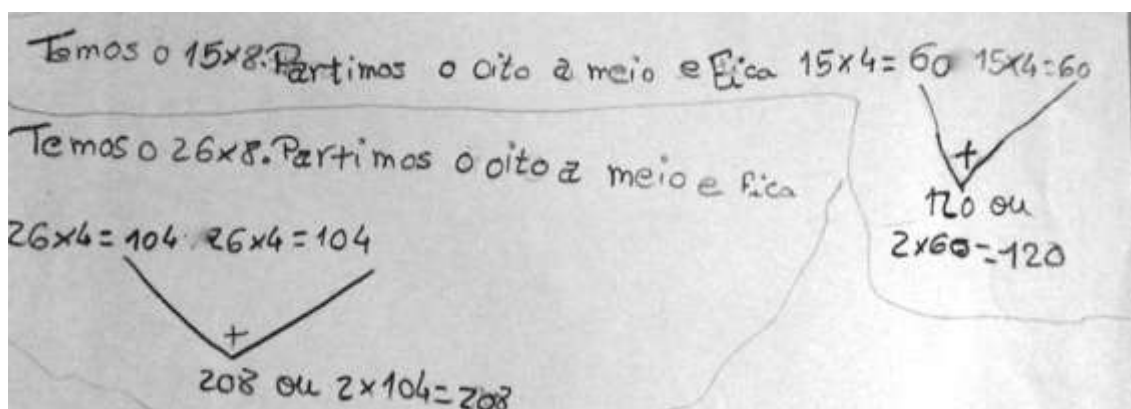 Temos o 15x8. Partimos o oito a meio e fica 15x4 = 60 15x4 = 60
+
120 ou
2x60 = 120
Temos o 26x8. Partimos o oito a meio e fica
26x4 = 104 26x4 = 104
+
208 ou 2x104 = 208